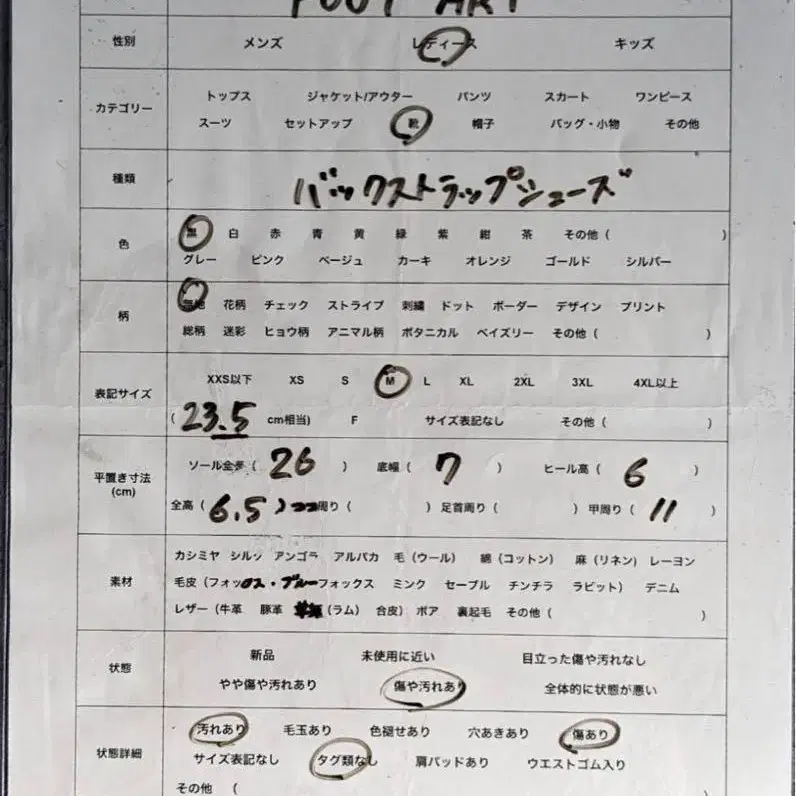 FOOT ART
性別 メンズ レディース キッズ
カテゴリー
トップス ジャケット/アウター パンツ スカート ワンピース
スーツ セットアップ 靴 帽子 バッグ・小物 その他
種類 バックストラップシューズ
色
黒 白 赤 青 黄 緑 紫 紺 茶 その他 ( )
グレー ピンク ベージュ カーキ オレンジ ゴールド シルバー
柄
無地 花柄 チェック ストライプ 刺繍 ドット ボーダー デザイン プリント
総柄 迷彩 ヒョウ柄 アニマル柄 ボタニカル ペイズリー その他 ( )
表記サイズ
XXS以下 XS S M L XL 2XL 3XL 4XL以上
( 23.5 cm相当) F サイズ表記なし その他 ( )
平置き寸法
(cm)
ソール全長 ( 26 ) 底幅 ( 7 ) ヒール高 ( 6 )
全高 ( 6.5 ) 周り ( ) 足首周り ( ) 甲周り ( 11 )
素材
カシミヤ シルク アンゴラ アルパカ 毛 (ウール) 綿 (コットン) 麻 (リネン) レーヨン
毛皮 (フォックス・ブルーフォックス ミンク セーブル チンチラ ラビット) デニム
レザー (牛革 豚革 (ラム) 合皮) ボア 裏起毛 その他 ( )
状態
新品 未使用に近い 目立った傷や汚れなし
やや傷や汚れあり 傷や汚れあり 全体的に状態が悪い
状態詳細
汚れあり 毛玉あり 色褪せあり 穴あきあり 傷あり
サイズ表記なし タグ類なし 肩パッドあり ウエストゴム入り
その他 (